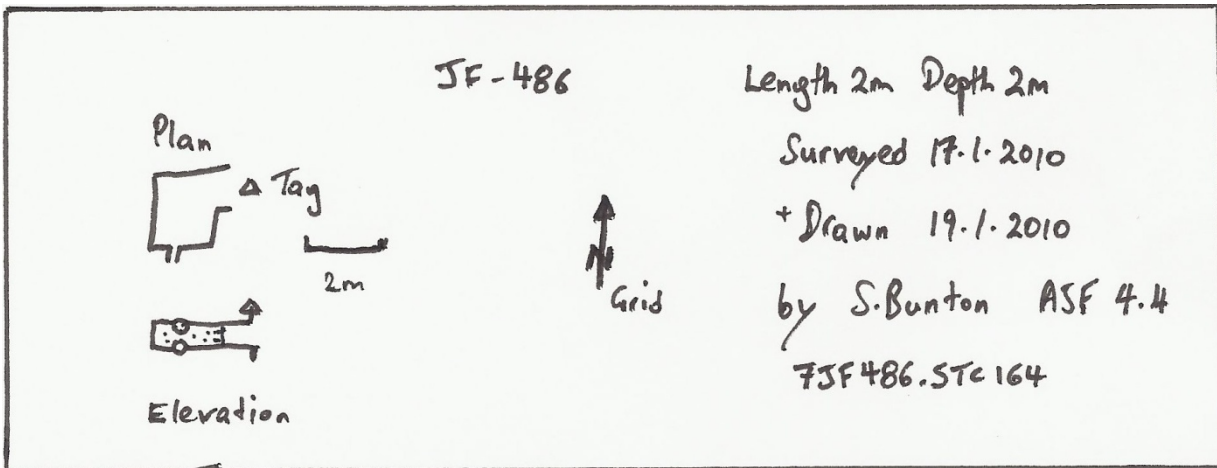 JF-486
Length 2m Depth 2m
Surveyed 17.1.2010
+ Drawn 19.1.2010
by S.Bunton ASF 4.4
7JF486.STC164
Plan
Tag
2m
N
Grid
Elevation